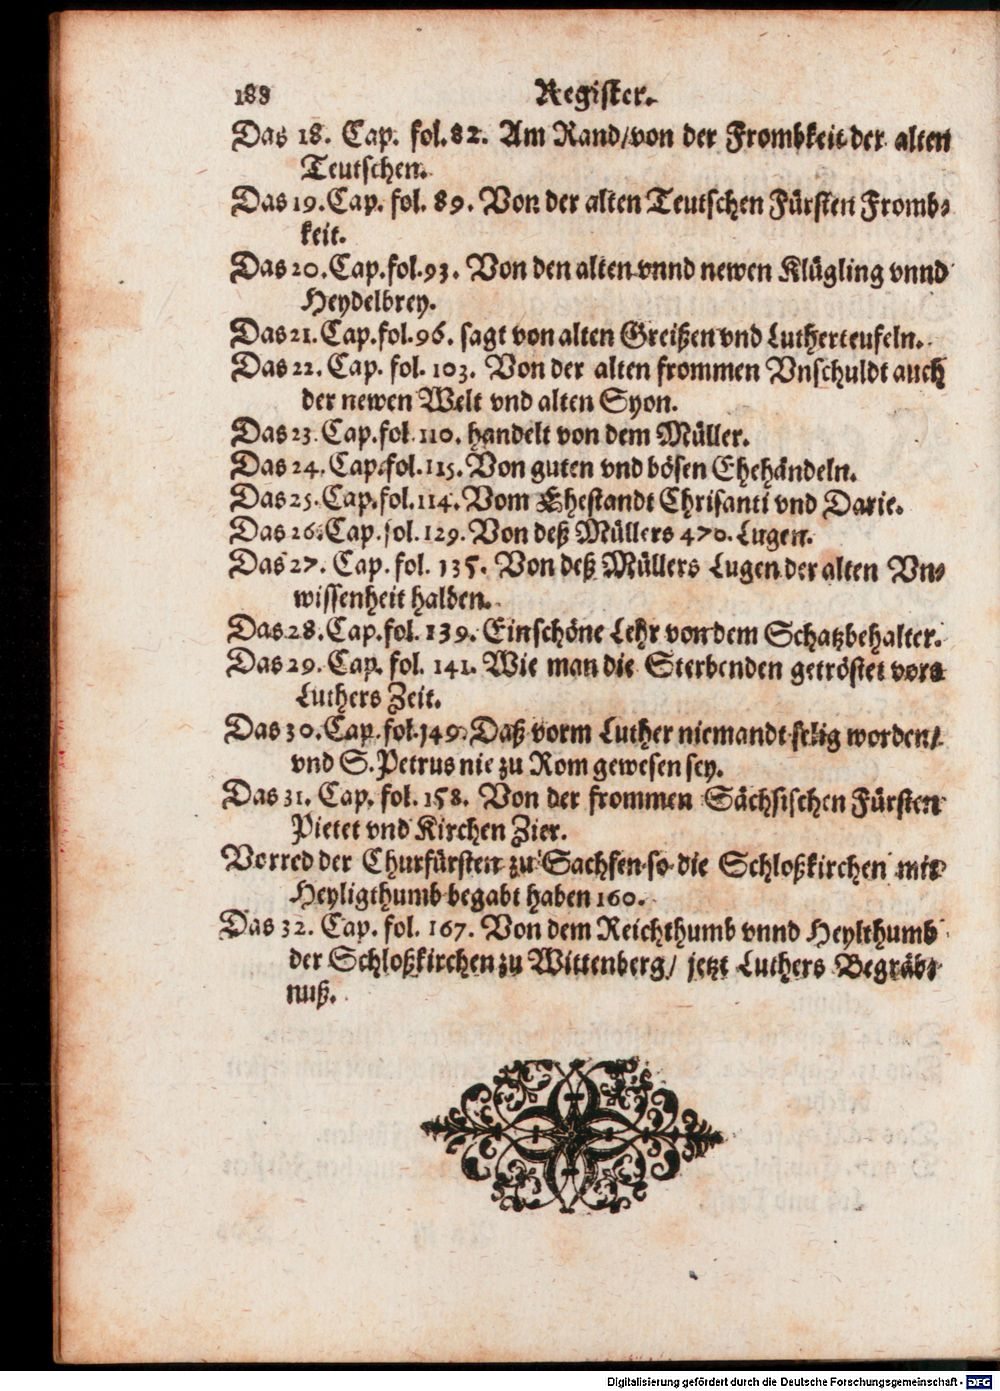 188 Register.
Das 18. Cap. fol. 82. Am Rand/von der Frombkeit der alten
Teutschen.
Das 19. Cap. fol. 89. Von der alten Teutschen Fürsten Fromb⸗
keit.
Das 20. Cap. fol. 93. Von den alten vnnd newen Klügling vnnd
Heydelbrey.
Das 21. Cap. fol. 96. sagt von alten Greißen vnd Lutherteufeln.
Das 22. Cap. fol. 103. Von der alten frommen Vnschuldt auch
der newen Welt vnd alten Syon.
Das 23. Cap. fol. 110. handelt von dem Müller.
Das 24. Cap. fol. 115. Von guten vnd bösen Ehehändeln.
Das 25. Cap. fol. 114. Vom Ehestandt Chrisanti vnd Darie.
Das 26. Cap. fol. 129. Von deß Müllers 470. Lugen.
Das 27. Cap. fol. 135. Von deß Müllers Lugen der alten Vn⸗
wissenheit halben.
Das 28. Cap. fol. 139. Ein schöne Lehr von dem Schatzbehalter.
Das 29. Cap. fol. 141. Wie man die Sterbenden getröstet vors
Luthers Zeit.
Das 30. Cap. fol. 149. Daß vorm Luther niemandt selig worden/
vnd S. Petrus nie zu Rom gewesen sey.
Das 31. Cap. fol. 158. Von der frommen Sächsischen Fürsten
Pietet vnd Kirchen Zier.
Vorred der Churfürsten zu Sachsen so die Schloßkirchen mit
Heyligthumb begabt haben 160.
Das 32. Cap. fol. 167. Von dem Reichthumb vnnd Heylthumb
der Schloßkirchen zu Wittenberg/ jetzt Luthers Begräb⸗
nuß.
Digitalisierung gefördert durch die Deutsche Forschungsgemeinschaft - DFG